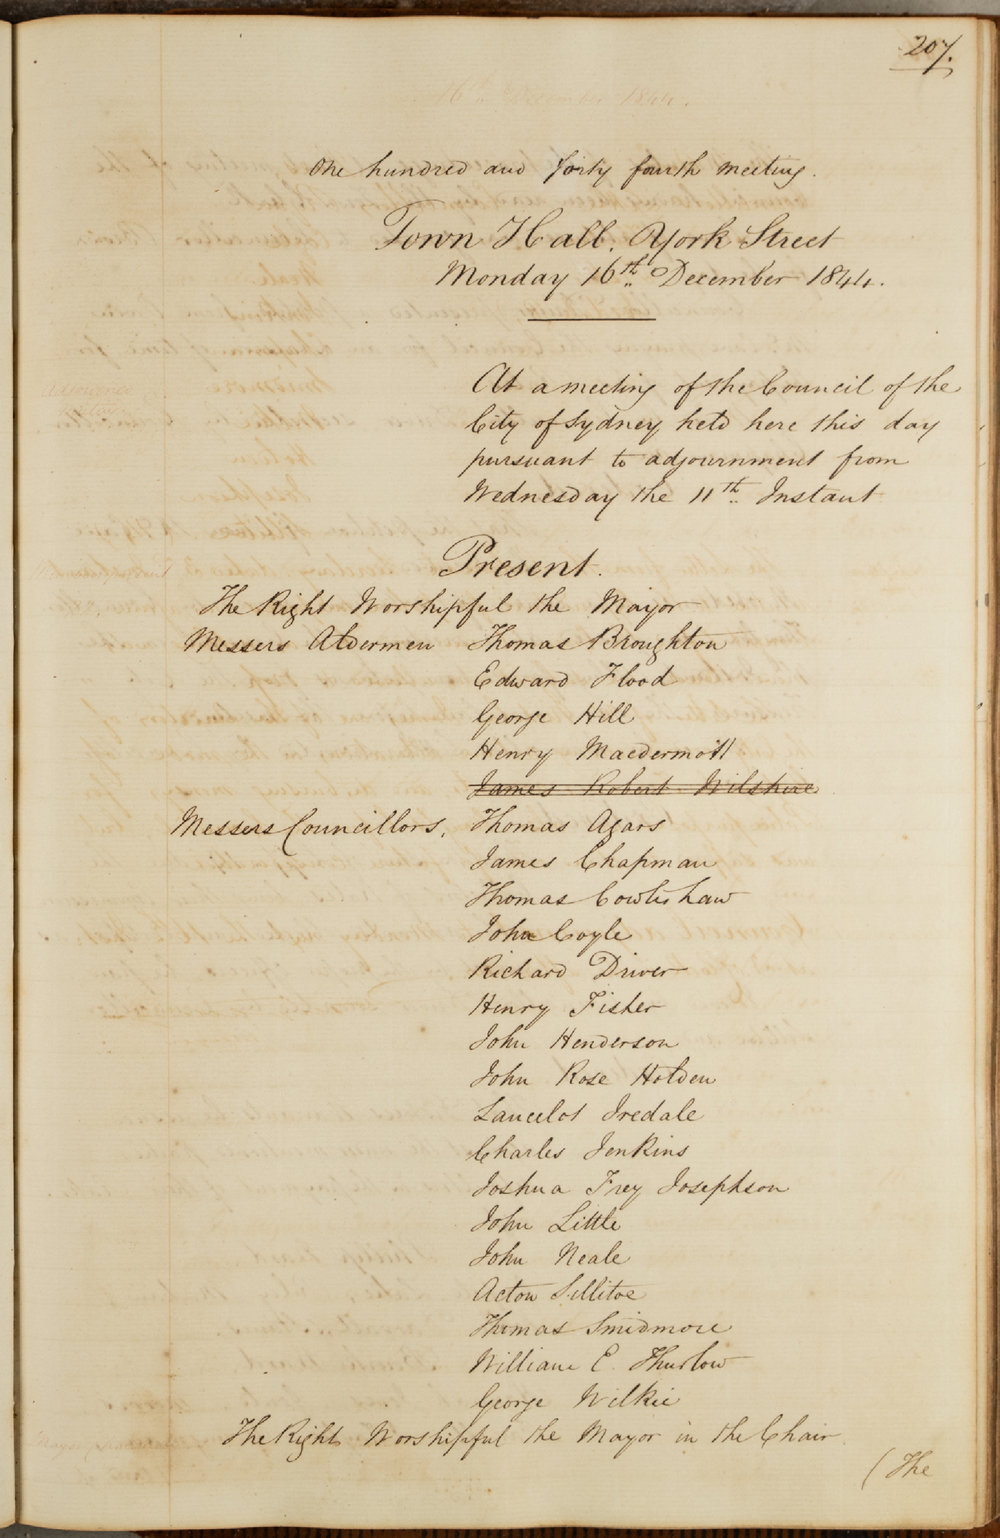 207.
One hundred and forty fourth meeting.
Town Hall. York Street
Monday 16th December 1844.
At a meeting of the Council of the
City of Sydney held here this day
pursuant to adjournment from
Wednesday the 11th Instant
Present.
The Right Worshipful the Mayor
Messers Aldermen Thomas Broughton
Edward Flood
George Hill
Henry Macdermott
James Robert Wilshire
Messers Councillors, Thomas Agars
James Chapman
Thomas Cowlishaw
John Coyle
Richard Driver
Henry Fisher
John Henderson
John Rose Holden
Lancelot Iredale
Charles Jenkins
Joshua Frey Josephson
John Little
John Neale
Acton Sillitoe
Thomas Smidmore
William E. Thurlow
George Wilkie
The Right Worshipful the Mayor in the Chair
(The